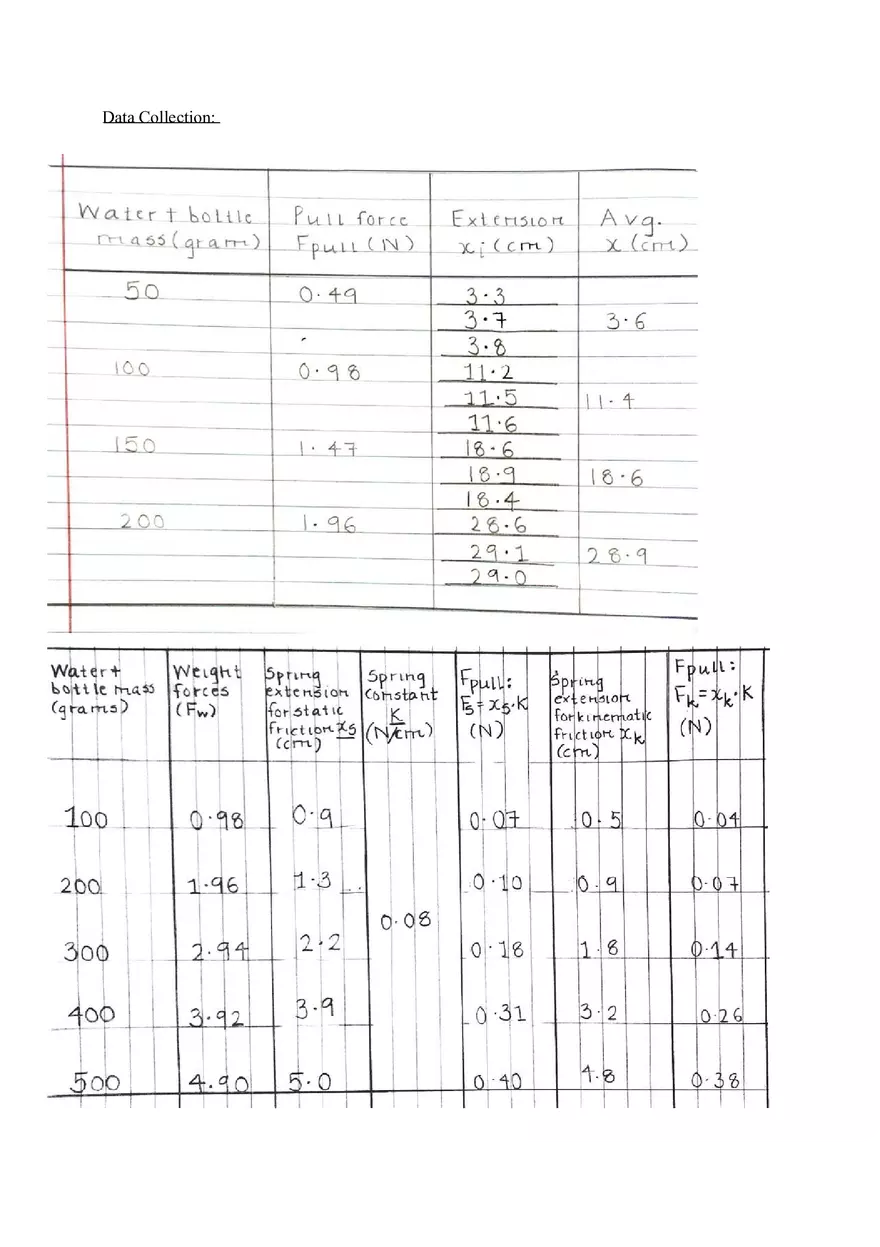 Data Collection:
Water + bottle mass (gram) | Pull force Fpull (N) | Extension xi (cm) | Avg. x (cm)
50 | 0.49 | 3.3
3.7 | 3.6
3.8
100 | 0.98 | 11.2
11.5 | 11.4
11.6
150 | 1.47 | 18.6
18.9 | 18.6
18.4
200 | 1.96 | 28.6
29.1 | 28.9
29.0
Water + bottle mass (grams) | Weight forces (Fw) | Spring extension for static friction xs (cm) | Spring constant K (N/cm) | Fpull: Fs = xs.K (N) | Spring extension for kinematic friction xk (cm) | Fpull: Fk = xk.K (N)
100 | 0.98 | 0.9 | 0.07 | 0.5 | 0.04
200 | 1.96 | 1.3 | 0.10 | 0.9 | 0.07
0.08
300 | 2.94 | 2.2 | 0.18 | 1.8 | 0.14
400 | 3.92 | 3.9 | 0.31 | 3.2 | 0.26
500 | 4.90 | 5.0 | 0.40 | 4.8 | 0.38